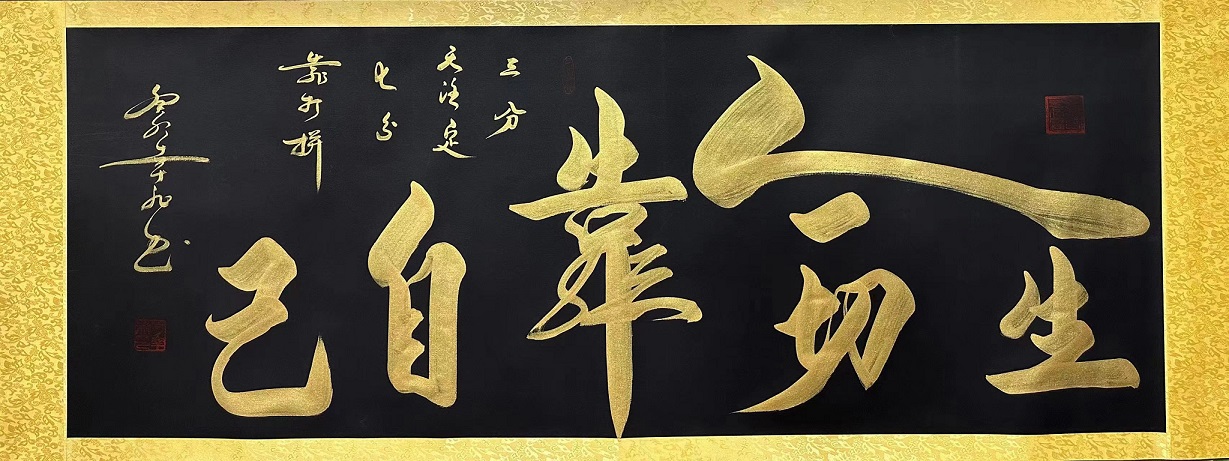 人生一切靠自己
三分
天注定
七分
靠打拼